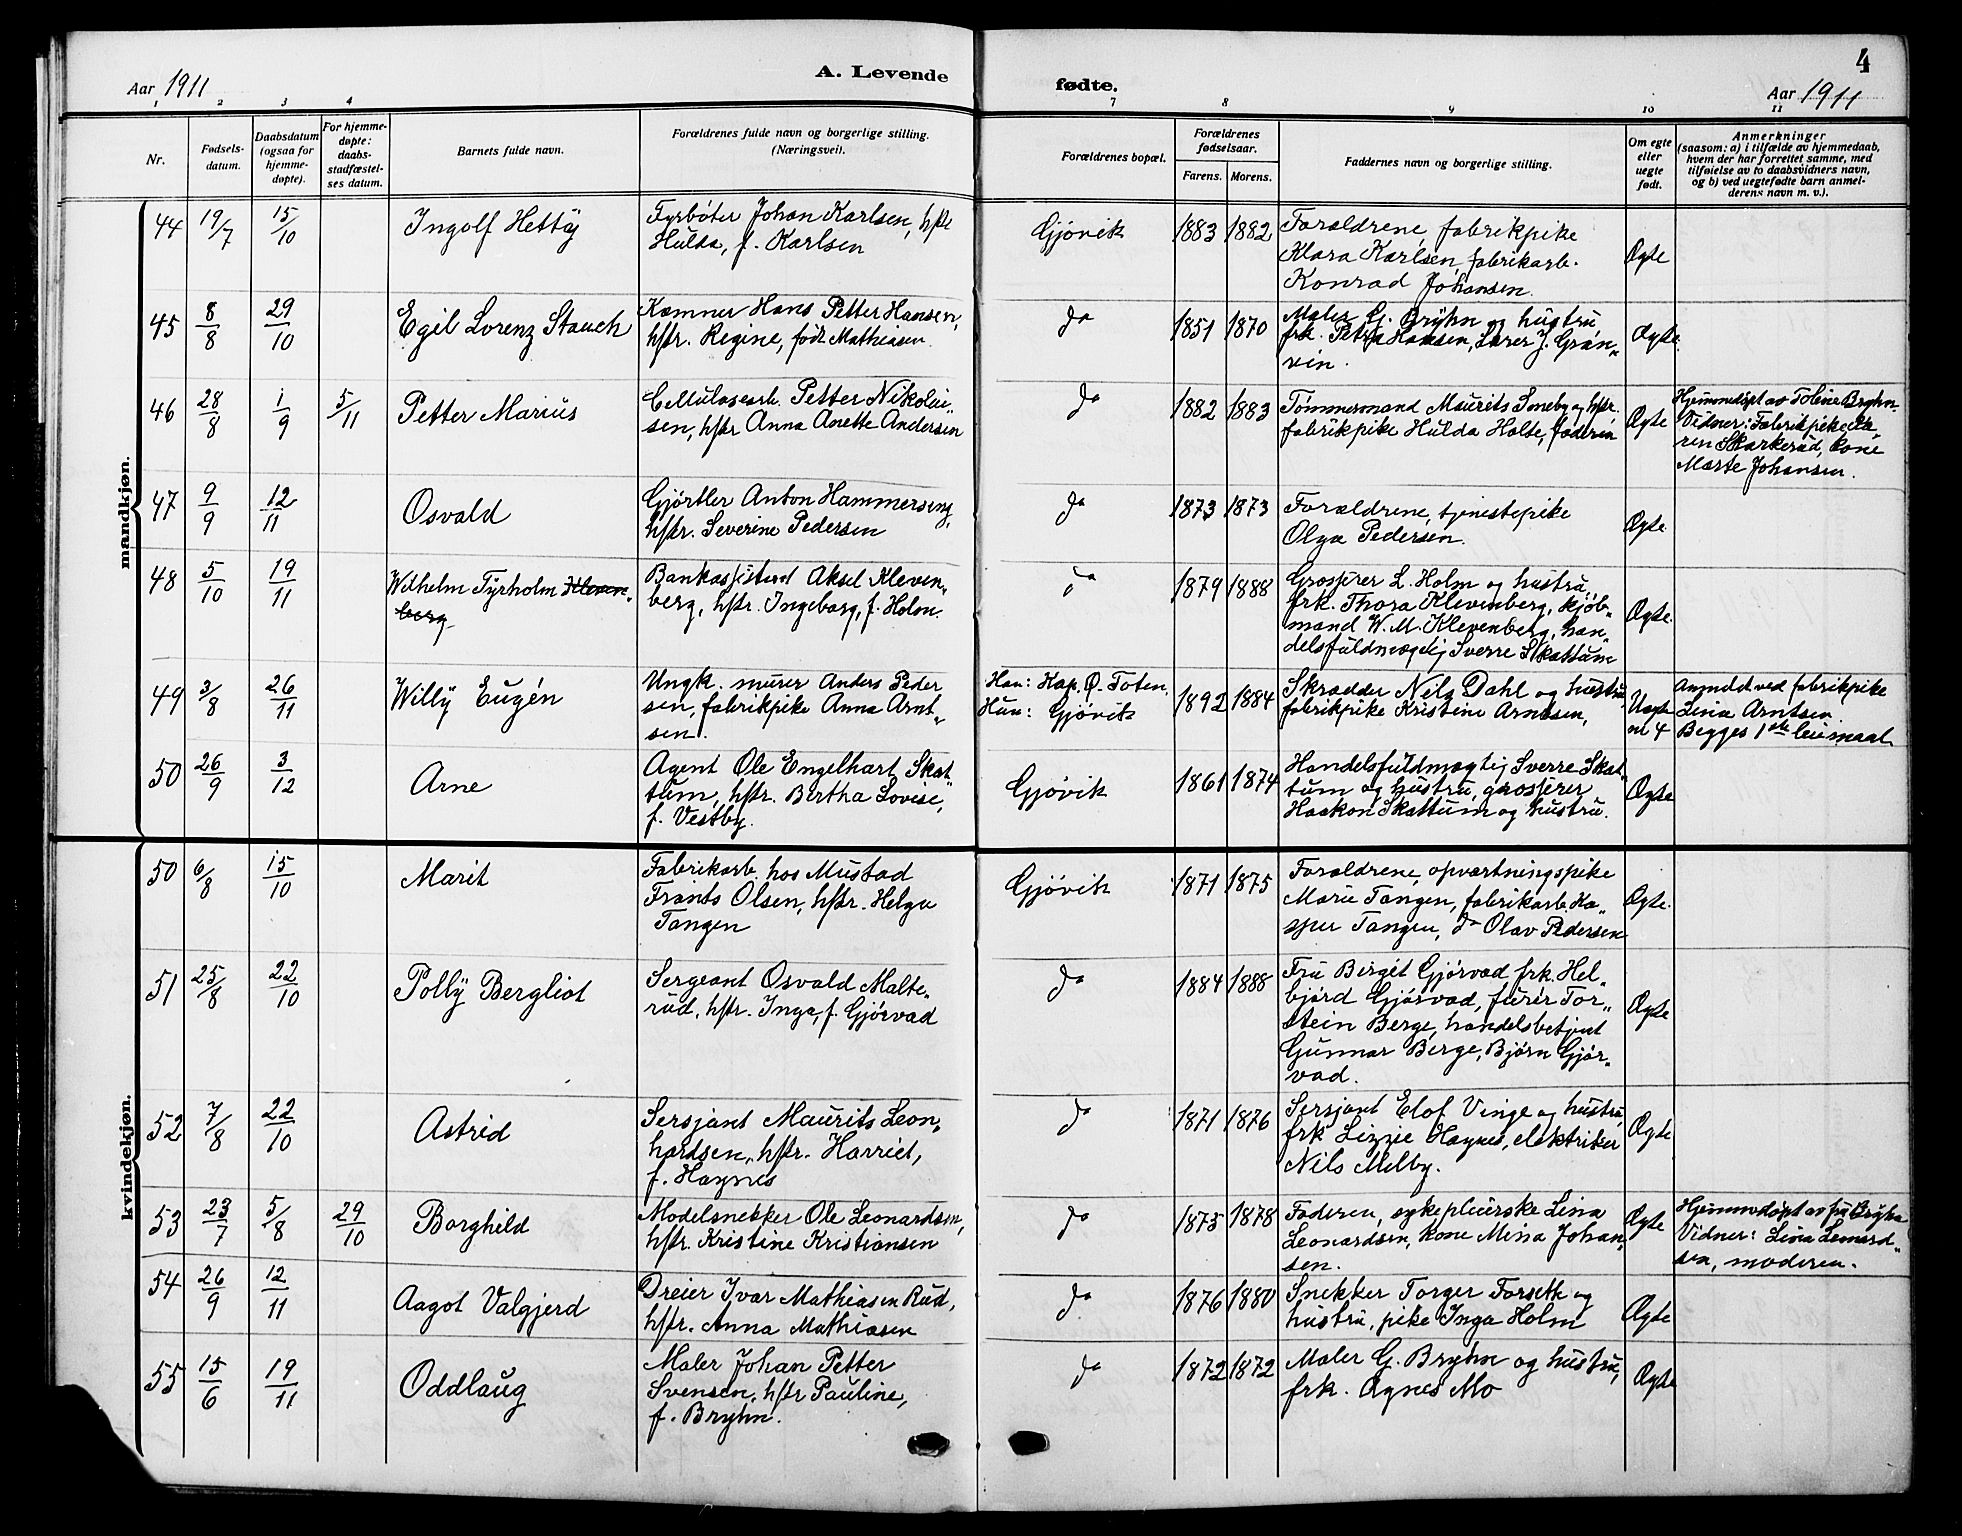 Aar 1911
A. Levende
fødte.
4
Aar 1911
1 2 3 4
7 8 9 10 11
Nr.
Fødsels-
datum.
Daabsdatum
(ogsaa for
hjemme-
døpte).
For hjemme-
døpte:
daabs-
stadfæstel-
ses datum.
Barnets fulde navn.
Forældrenes fulde navn og borgerlige stilling.
(Næringsvei).
Forældrenes bopæl.
Forældrenes
fødselsaar.
Farens. Morens.
Faddernes navn og borgerlige stilling.
Om egte
eller
uegte
født.
Anmerkninger
(saasom: a) i tilfælde av hjemmedaab,
hvem der har forrettet samme, med
tilføielse av to daabsvidners navn,
og b) ved uegtefødte barn anmel-
derens navn m. v.).
mandkjøn.
44 19/7 15/10 Ingolf Hettÿ
Fyrbøter Johan Karlsen, hstr
Hulda, f. Karlsen
Gjøvik 1883 1882
Forældrene, fabrikpike
Klara Karlsen, fabrikarb.
Konrad Johansen.
Ægte
45 8/8 29/10 Egil Lorenz Stauch
Kæmner Hans Petter Hansen,
hstr. Regine, født Mathiasen.
do 1851 1870
Maler G. Brÿhn og hustru,
frk. Petra Hansen, Lærer J. Gran-
vin.
Ægte
46 28/8 1/9 5/11 Petter Marius
Cellulosearb. Petter Nikolai-
sen, hstr Anna Anette Andersen
do 1882 1883
Tømmermand Maurits Smeby og hstr.
fabrikpike Hulda Holte, faderen
Ægte
Hjemmedøpt av Toline Bryhn
Vidner: Fabrikpike Ka
ren Skarkerud, kone
Marte Johansen.
47 9/9 12/11 Osvald
Gjørtler Anton Hammerseng,
hstr. Severine Pedersen
do 1873 1873
Forældrene, tjenestepike
Olga Pedersen.
Ægte
48 5/10 19/11 Wilhelm Tyrholm Kleven-
berg
Bankassistent Aksel Kleven-
berg, hstr. Ingeborg, f. Holm.
do 1879 1888
Grosserer L. Holm og hustru,
frk. Thora Klevenberg, kjøb-
mand W. M. Klevenberg, han-
delsfuldmægtig Sverre Skattum
Ægte.
49 3/8 26/11 Willÿ Eugén
Ungk. murer Anders Peder
sen, fabrikpike Anna Arnt-
sen.
Han: Kap. Ø. Toten.
Hun: Gjøvik
1892 1884
Skrædder Nils Dahl og hustru
fabrikpike Kristine Arntsen,
Uægte
nr 4
Anmeldt ved fabrikpike
Lina Arntsen.
Begges 1ste leiermaal
50 26/9 3/12 Arne
Agent Ole Engelhart Skat-
tum, hstr. Bertha Lovise,
f. Vestby.
Gjøvik 1861 1874
Handelsfuldmægtig Sverre Skat-
tum og hustru, grosserer
Haakon Skattum og hustru.
Ægte
kvindekjøn.
50 6/8 15/10 Marit
Fabrikarb. hos Mustad
Frants Olsen, hstr. Helga
Tangen
Gjøvik 1871 1875
Forældrene, opvartningspike
Marie Tangen, fabrikarb. Ka-
sper Tangen, do Olav Pedersen
Ægte.
51 25/8 22/10 Pollÿ Bergliot
Sergeant Osvald Malte-
rud, hstr. Inga, f. Gjørvad
do 1884 1888
Fru Birgit Gjørvad, frk. Hel-
bjørd Gjørvad, furer Tor-
stein Berge, handelsbetjent
Gunnar Berge, Bjørn Gjør-
vad.
Ægte
52 7/8 22/10 Astrid
Sersjant Maurits Leon-
hardsen, hstr. Harriet,
f. Haynes
do 1871 1876
Sersjant Elof Vinge og hustru,
frk Lizzie Haynes, elektriker
Nils Melby.
Ægte
53 23/7 5/8 29/10 Borghild
Modelsnekker Ole Leonardsen,
hstr. Kristine Kristiansen
do 1875 1878
Faderen, sykepleierske Lina
Leonardsen, kone Mina Johan-
sen.
Ægte
Hjemmedøpt av fru Bryhn
Vidner: Lina Leonard-
sen, moderen.
54 26/9 12/11 Aagot Valgjerd
Dreier Ivar Mathiasen Rud,
hstr. Anna Mathiasen
do 1876 1880
Snekker Torger Forseth og
hustru, pike Inga Holm
Ægte
55 15/6 19/11 Oddlaug
Maler Johan Petter
Svensen, hstr Pauline,
f. Bryhn.
do 1872 1872
Maler G. Bryhn og hustru,
frk. Agnes Mo
Ægte